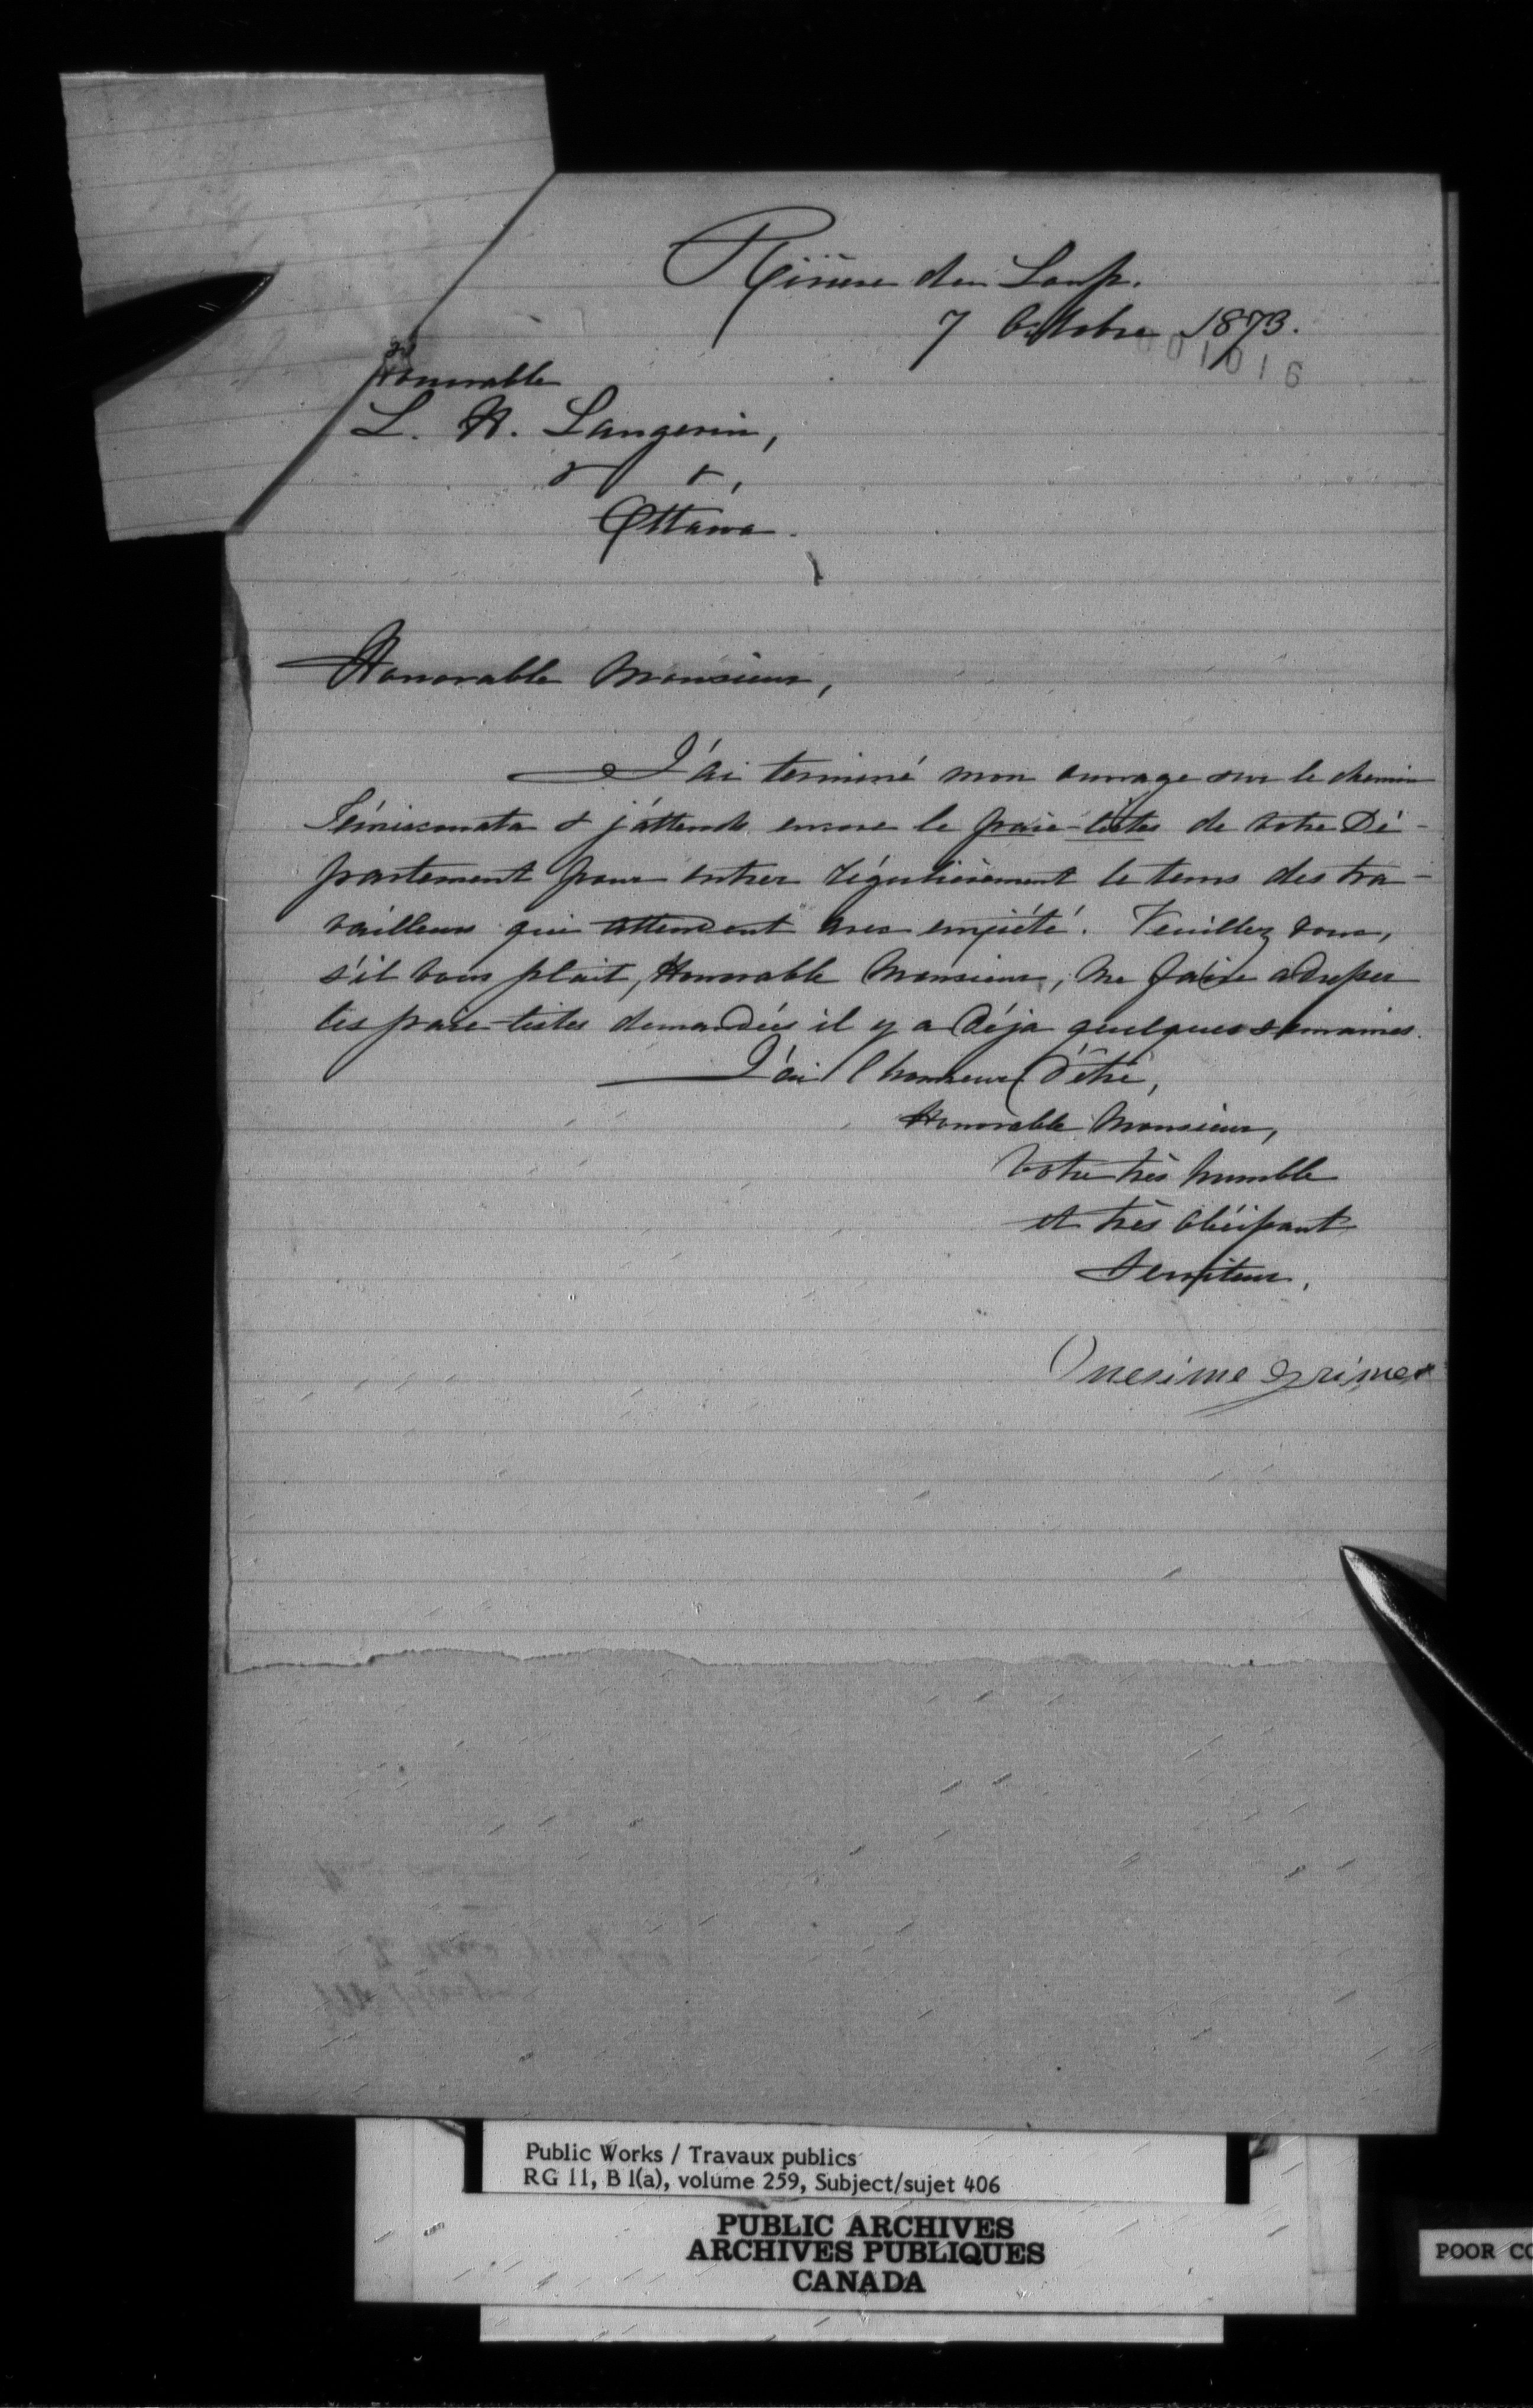 Rivière du Loup.
7 Octobre 1873.
001016
Honorable
L. H. Langevin,
& &,
Ottawa.
Honorable Monsieur,
J'ai terminé mon ouvrage sur le chemin
Témiscouata & j'attends encore le paie-listes de votre Dé-
partement pour entrer régulièrement le tems des tra-
vailleurs qui attendent avec enpiété. Veuillez donc,
s'il vous plait, Honorable Monsieur, me faire adresser
les paie-listes demandées il y a déja quelques semaines.
J'ai l'honneur d'être,
Honorable Monsieur,
Votre très humble
et très obéissant
Serviteur,
Onesime
Public Works / Travaux publics
RG 11, B 1(a), volume 259, Subject/sujet 406
PUBLIC ARCHIVES
ARCHIVES PUBLIQUES
CANADA
POOR CO